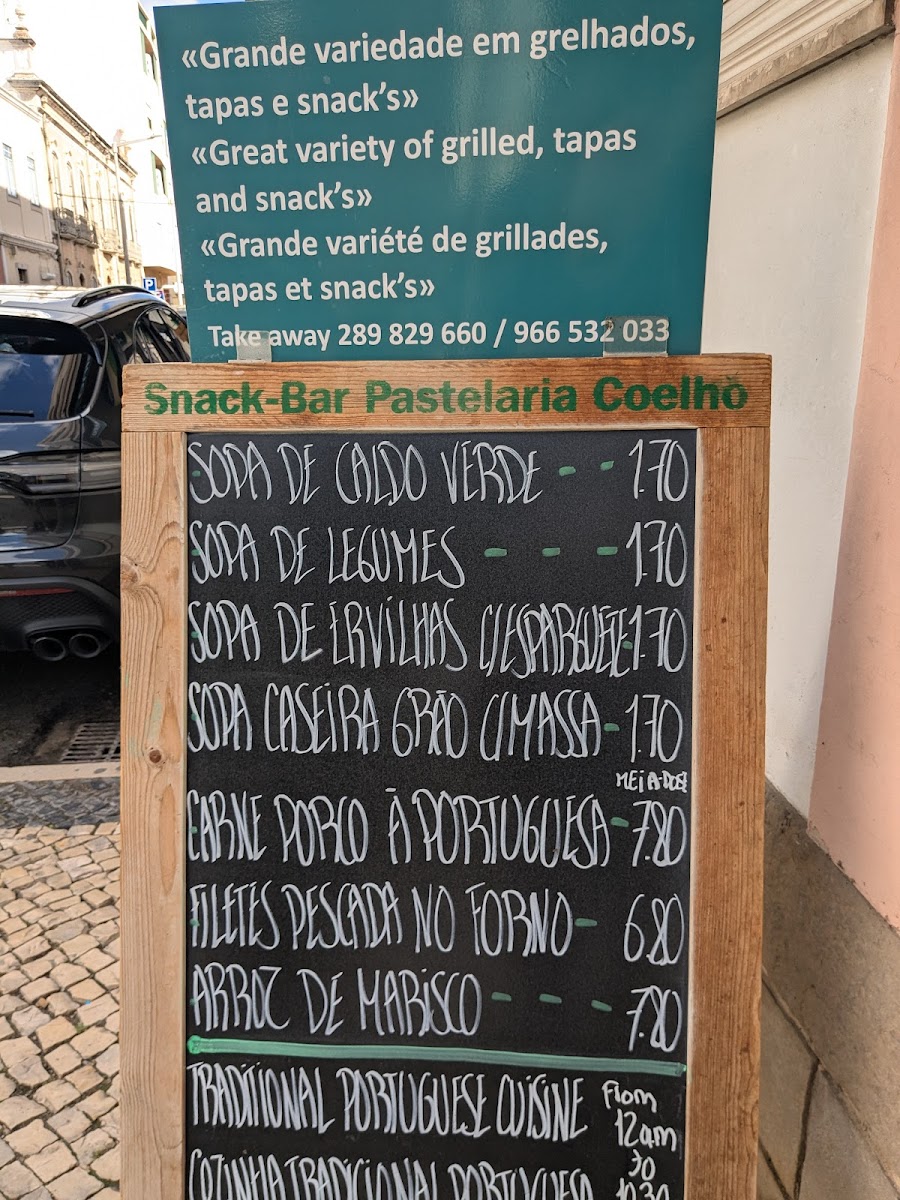 «Grande variedade em grelhados,
tapas e snack's»
«Great variety of grilled, tapas
and snack's»
«Grande variété de grillades,
tapas et snack's»
Take away 289 829 660 / 966 532 033
Snack-Bar Pastelaria Coelho
SOPA DE CALDO VERDE - - 1.70
SOPA DE LEGUMES - - - 1.70
SOPA DE ERVILHAS C/ESPARGUETE - 1.70
SOPA CASEIRA GRÃO C/MASSA - 1.70
MEIA-DOSE
CARNE PORCO À PORTUGUESA - 7.80
FILETES PESCADA NO FORNO - 6.80
ARROZ DE MARISCO - - - 7.80
TRADITIONAL PORTUGUESE CUISINE From
12am
TO
COZINHA TRADICIONAL PORTUGUESA